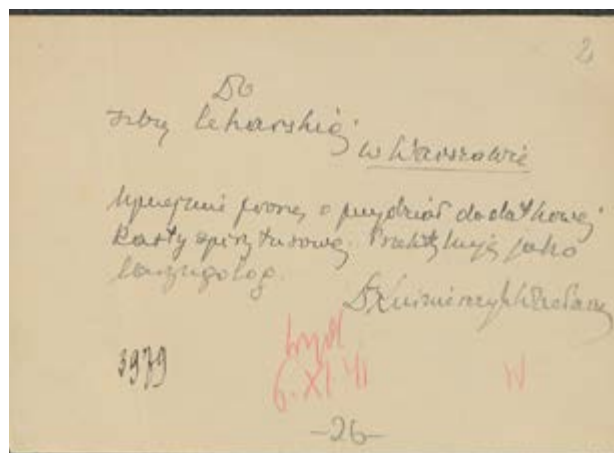 2
Do
Izby Lekarskiej
w Warszawie
Uprzejmie proszę o przydział dodatkowej
karty spirytusowej. Praktykuję jako
laryngolog.
Dr
3979
6. XI 41
W
-26-